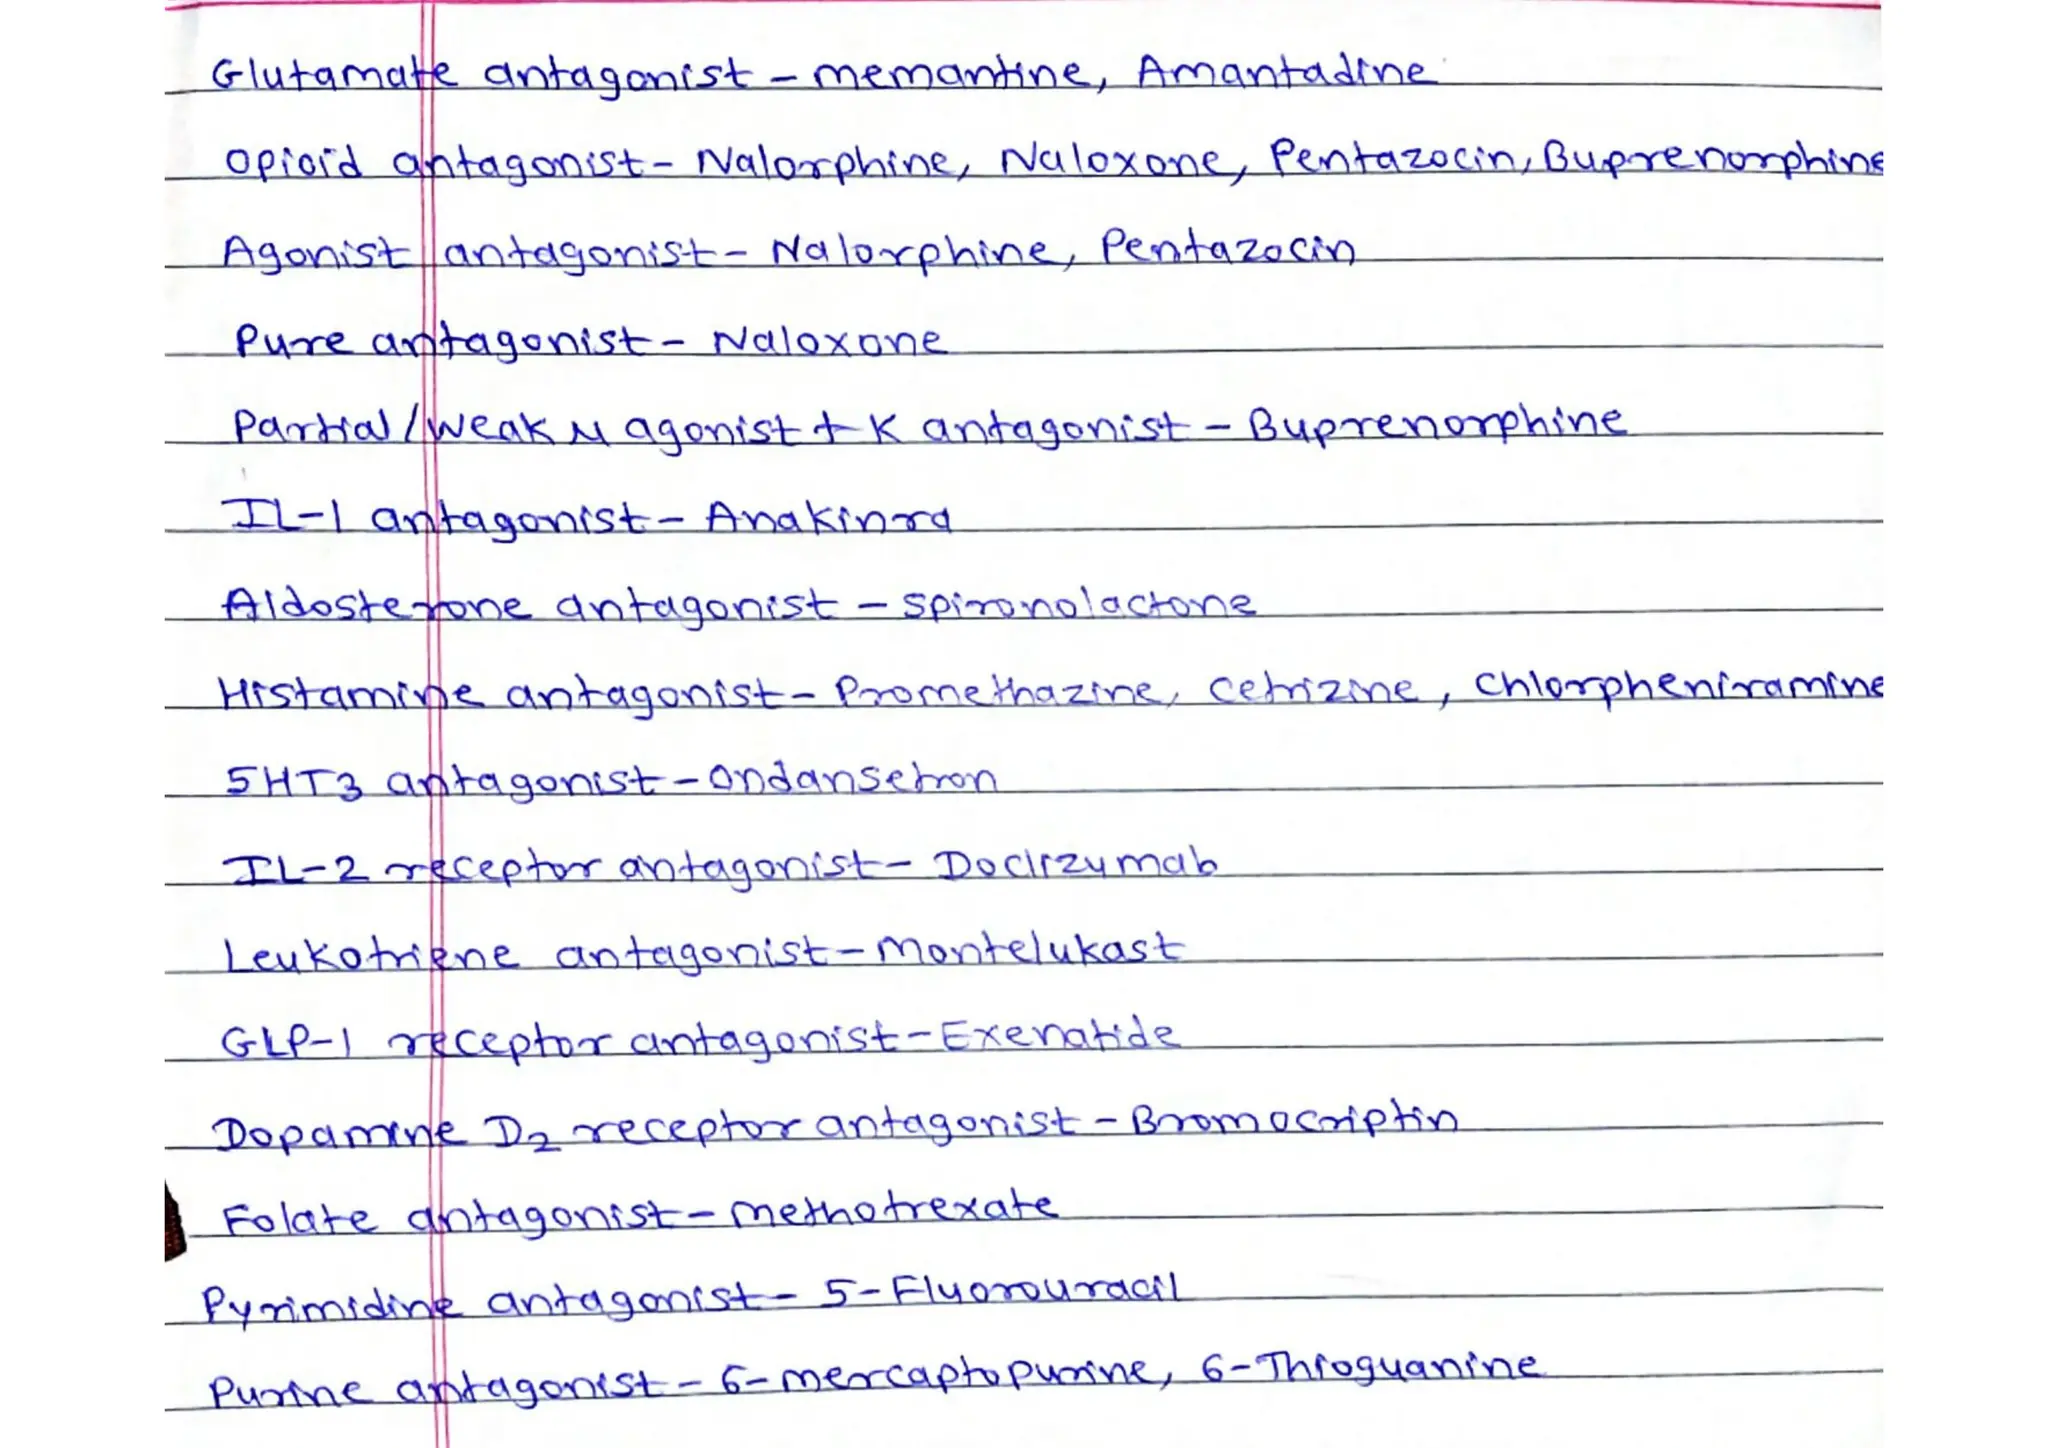 Glutamate antagonist - memantine, Amantadine
Opioid antagonist - Nalorphine, Naloxone, Pentazocin, Buprenorphine
Agonist antagonist - Nalorphine, Pentazocin
Pure antagonist - Naloxone
Partial/weak μ agonist + K antagonist - Buprenorphine
IL-1 antagonist - Anakinra
Aldosterone antagonist - spironolactone
Histamine antagonist - Promethazine, cetrizine, chlorpheniramine
5HT3 antagonist - Ondansetron
IL-2 receptor antagonist - Daclizumab
Leukotriene antagonist - Montelukast
GLP-1 receptor antagonist - Exenatide
Dopamine D2 receptor antagonist - Bromocriptin
Folate antagonist - methotrexate
Pyrimidine antagonist - 5-Fluorouracil
Purine antagonist - 6-mercaptopurine, 6-Thioguanine